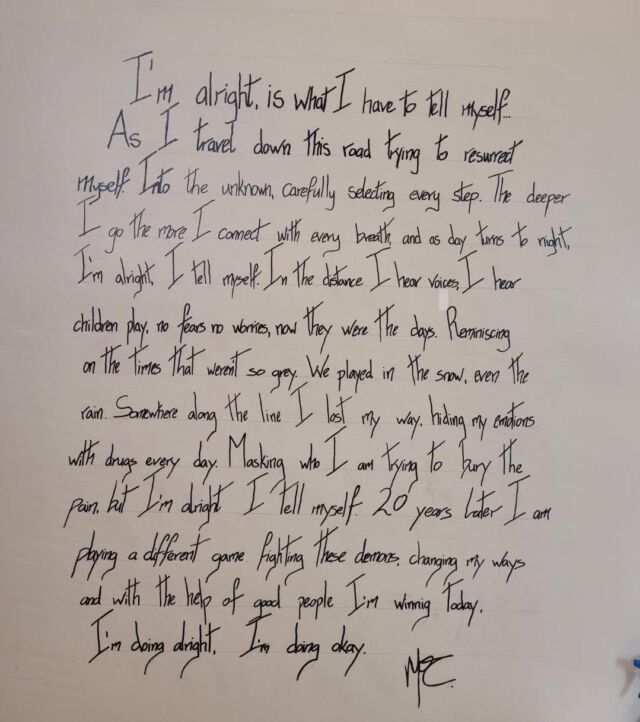 I'm alright, is what I have to tell myself...
As I travel down this road trying to resurrect
myself. Into the unknown, carefully selecting every step. The deeper
I go the more I connect with every breath, and as day turns to night,
I'm alright, I tell myself. In the distance I hear voices, I hear
children play, no fears no worries, now they were the days. Reminiscing
on the times that weren't so grey. We played in the snow, even the
rain. Somewhere along the line I lost my way, hiding my emotions
with drugs every day. Masking who I am trying to bury the
pain, but I'm alright I tell myself. 20 years later I am
playing a different game fighting these demons, changing my ways
and with the help of good people I'm winnig today,
I'm doing alright, I'm doing okay.